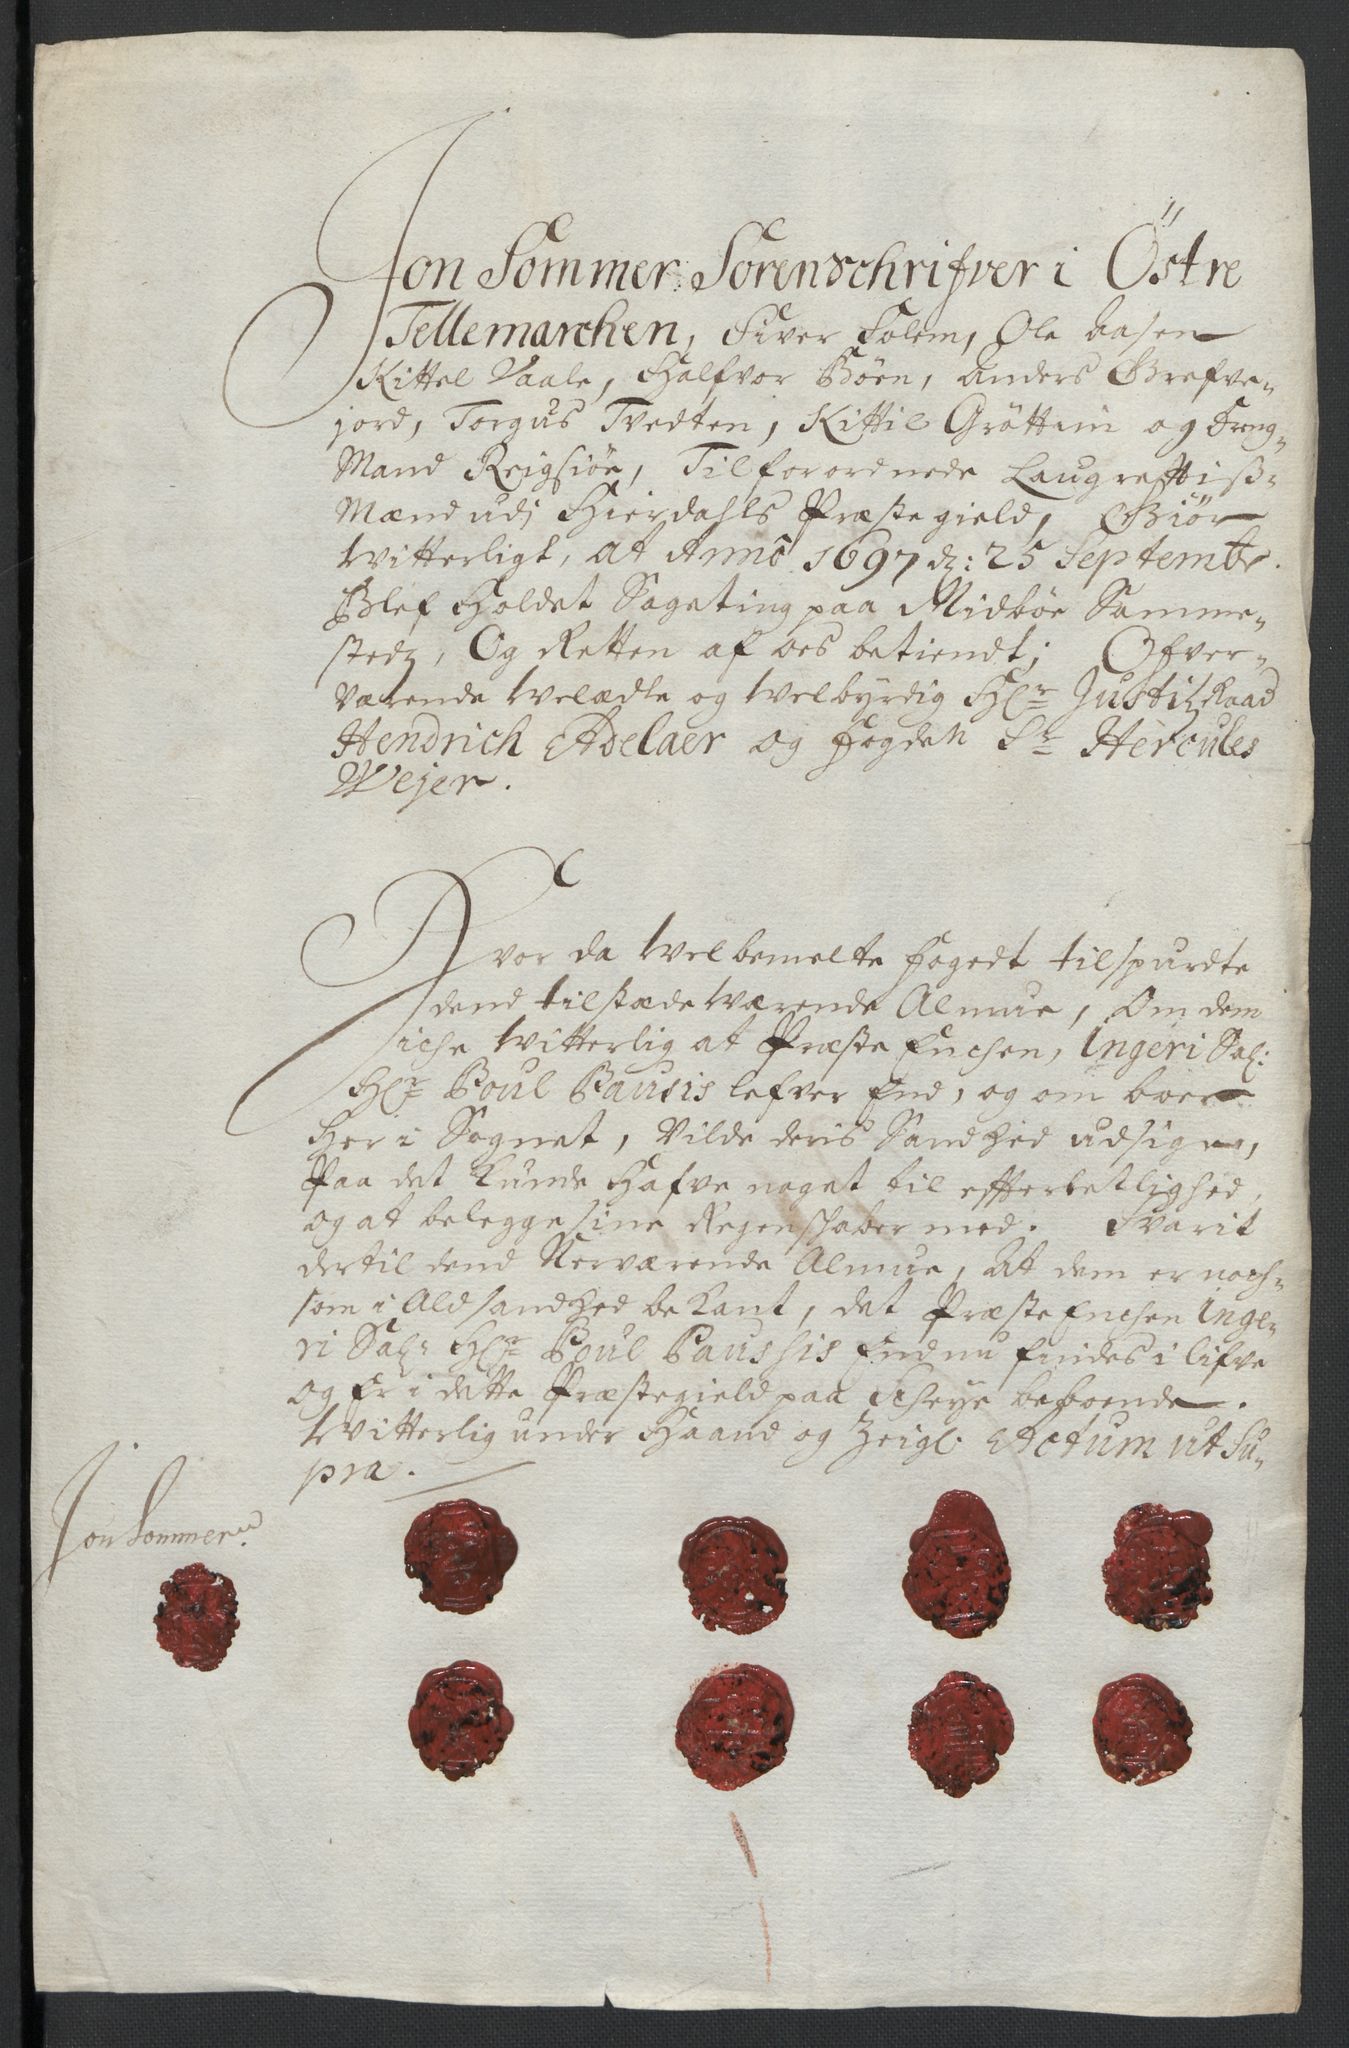 Jon Sommer Sorenschrifver i Östre
Tellemarchen, Siver Solem, Ole Aasen
Kittel Vaale, Halfvor Böen, Anders Grefve-
jord, Torgus Tvedten, Kittil Gröttem og
Mand Reigsiöe, Tilforordnede Laugrettiß-
Mænd udj Hierdahls Præstegield, Giör
Witterligt, at Anno 1697 dn: 25 Septembr.
Blef Holdet Sageting paa Midböe Samme-
stedz, Og Retten af oes betiendt; Ofver-
værende Welædle og Welbyrdig Hr Justitz Raad
Hendrich Adelaer og Fogden Sr Hercules
Wejer.
Hvor da Welbemelte Fogedt tilspurdte
dend tilstædeværende Almue, Om dem
iche Witterlig at Præste Enchen, Ingeri Sal:
Hr Poul Pausis lefver End, og om boer
Her i Sognet, Vilde deris Sandhed udsige,
Paa det Kunde Hafve noget til effterretlighed,
og at belegge sine Regenschaber med. Svarit
dertil dend Nerværende Almue, At dem er noch-
som i Ald sandhed bekant, det Præste Enchen Inge-
ri Sal: Hr Poul Paussis Endnu findes i lifve
og Er i dette Præstegield paa Scheye beboende.
Witterlig under Haand og Zeigl. Actum ut Su-
pra.
Jon Sommer